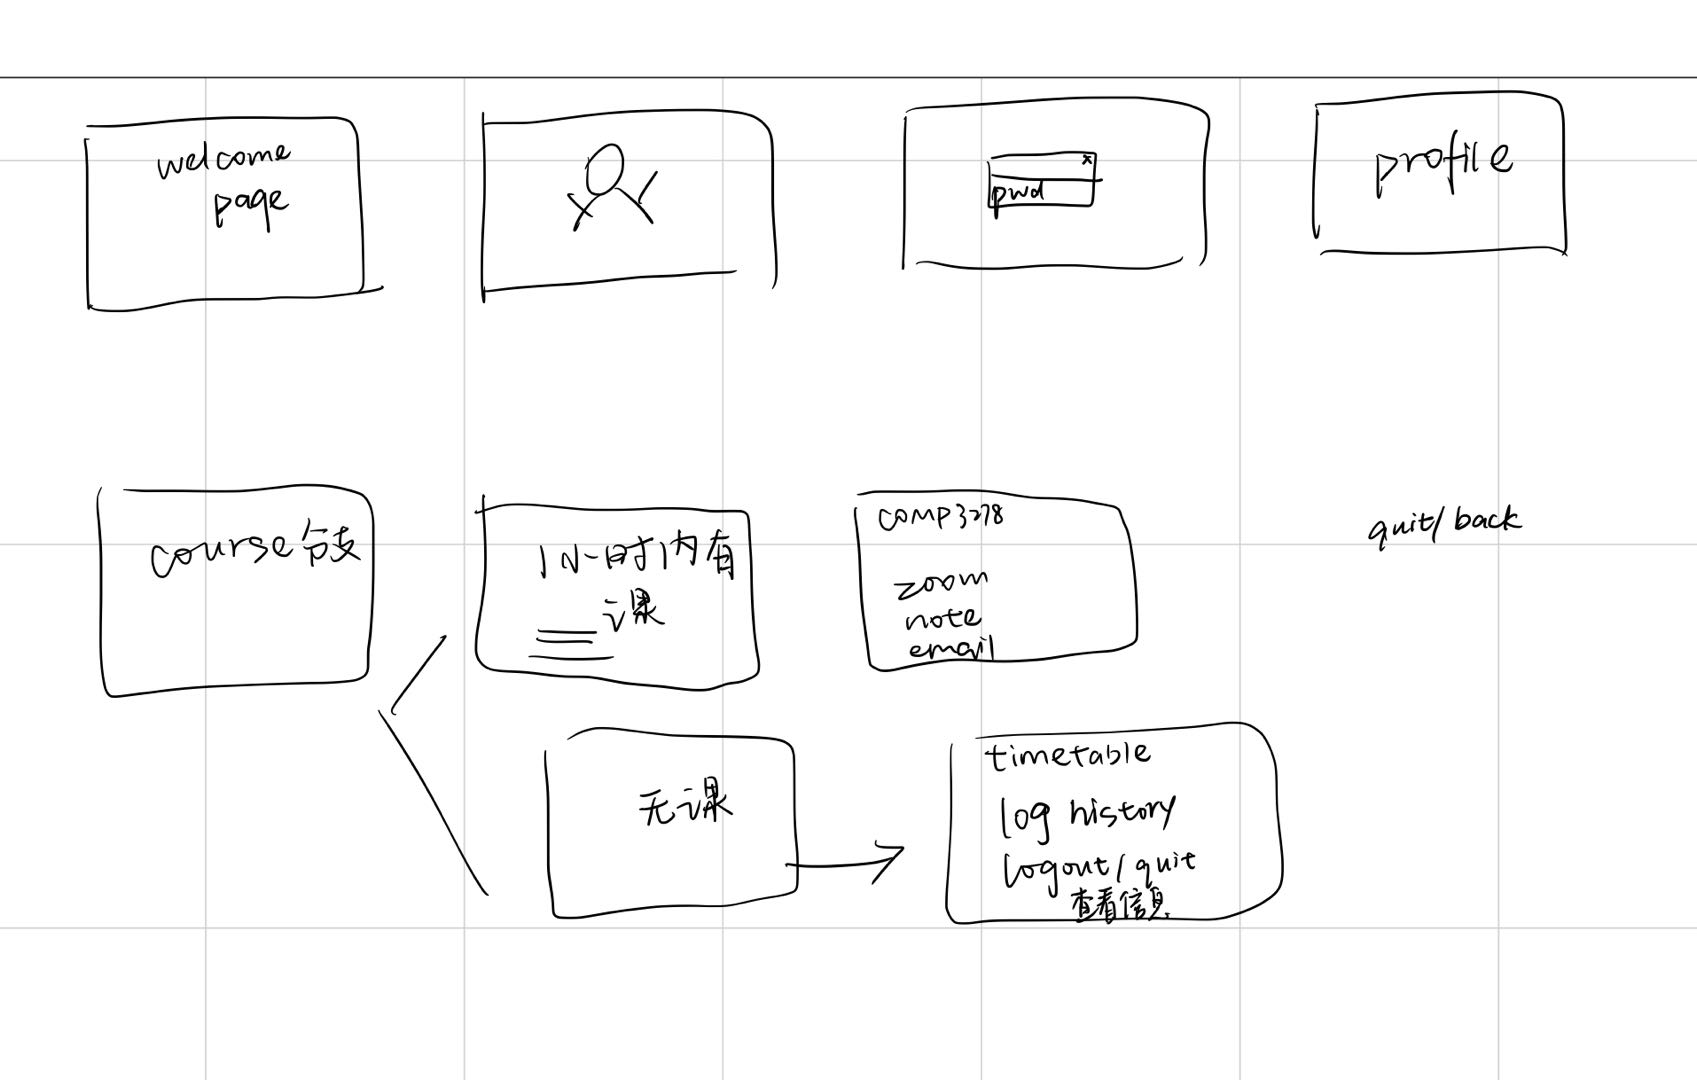 welcome
page
x
pwd
profile
course 分支
1小时内有
课
COMP3278
zoom
note
email
quit/back
无课
timetable
log history
logout/quit
查看信息